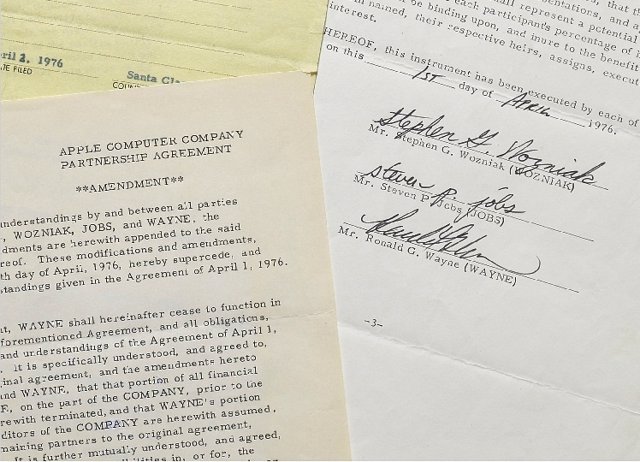 pril 2, 1976
TE FILED
Santa Cla
COUN
APPLE COMPUTER COMPANY
PARTNERSHIP AGREEMENT
**AMENDMENT**
understandings by and between all parties
, WOZNIAK, JOBS, and WAYNE, the
dments are herewith appended to the said
reof. These modifications and amendments,
th day of April, 1976, hereby supercede, and
standings given in the Agreement of April 1, 1976.
nt, WAYNE shall hereinafter cease to function in
forementioned Agreement, and all obligations,
and understandings of the Agreement of April 1,
. It is specifically understood, and agreed to,
inal agreement, and the amendments hereto
and WAYNE, that that portion of all financial
E, on the part of the COMPANY, prior to the
rewith terminated, and that WAYNE's portion
ditors of the COMPANY are herewith assumed,
maining partners to the original agreement,
It is further mutually understood, and agreed,
bilities in, or for, the
entations, and a
all represent a potential
each participant's percentage of
be binding upon, and inure to the benefit
in named, their respective heirs, assigns, execut
interest.
HEREOF, this instrument has been executed by each of
on this 1ST day of APRIL 1976.
Stephen G. Wozniak
Mr. Stephen G. Wozniak (WOZNIAK)
steven p. jobs
Mr. Steven P. Jobs (JOBS)
Mr. Ronald G. Wayne (WAYNE)
-3-